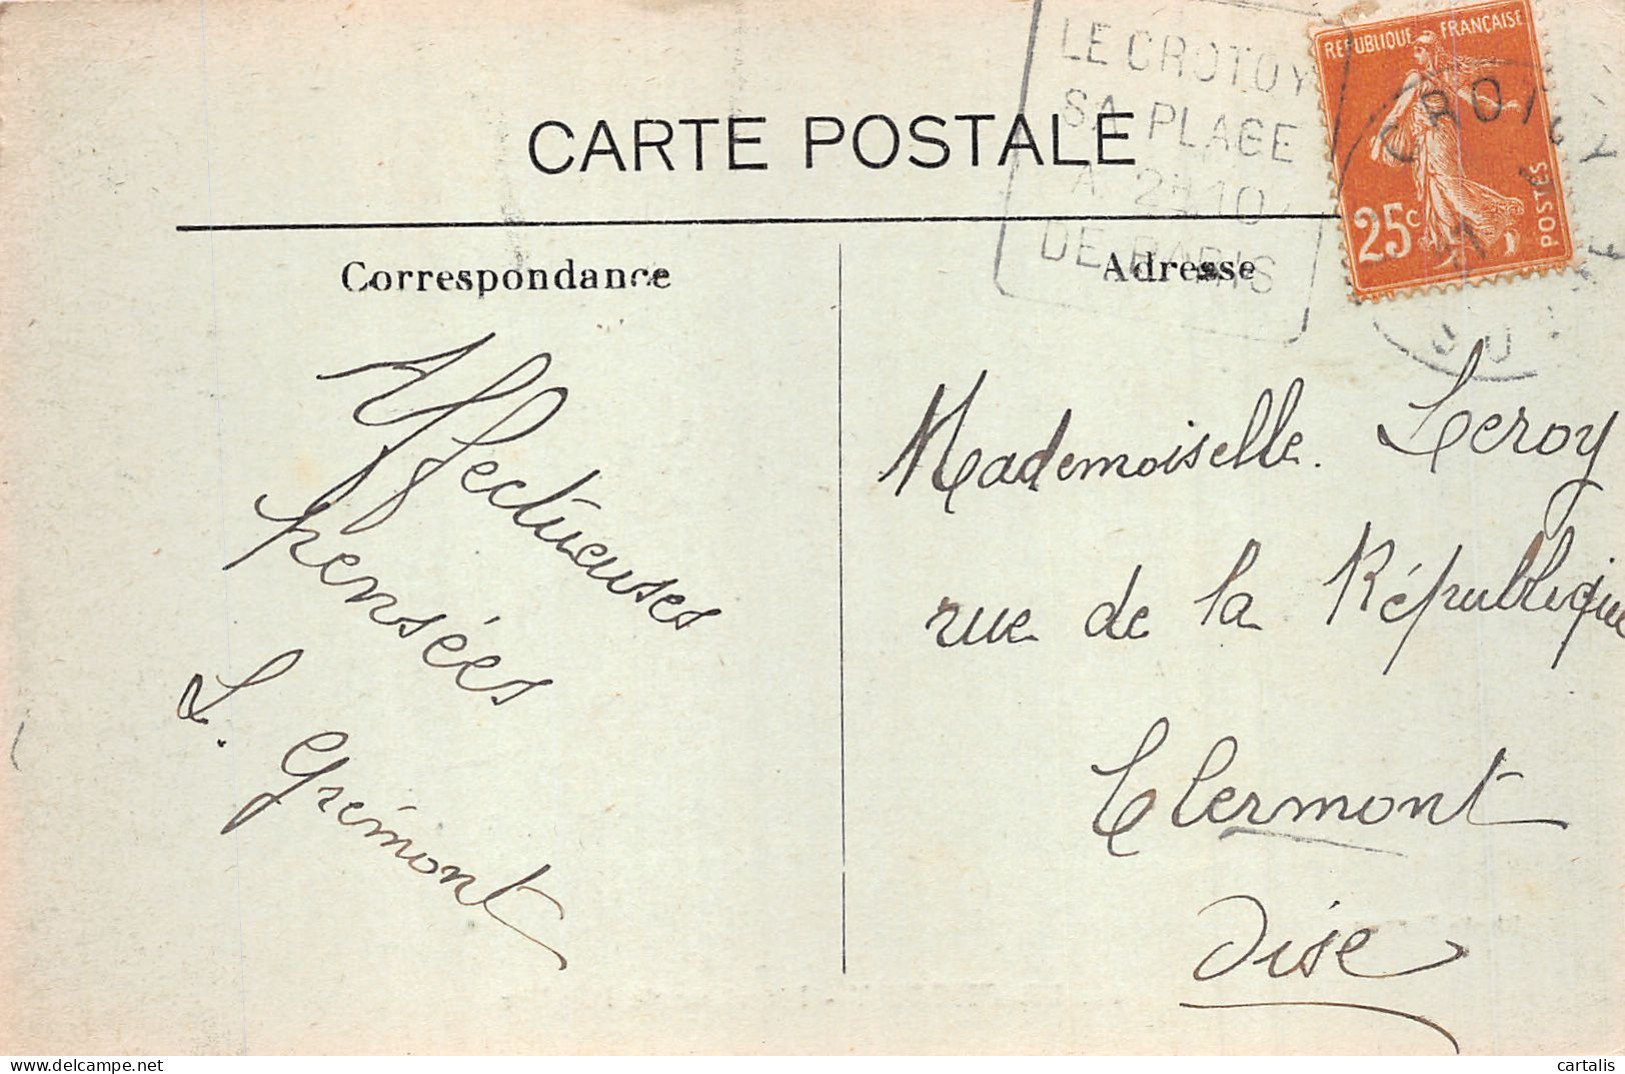 CARTE POSTALE
LE CROTOY
SA PLAGE
A 2H10
DE PARIS
REPUBLIQUE FRANÇAISE
25c
POSTES
CROTOY
Correspondance
Affectueuses
pensées
L. Grémont
Adresse
Mademoiselle. Leroy
rue de la République
Clermont
Oise
cartalis